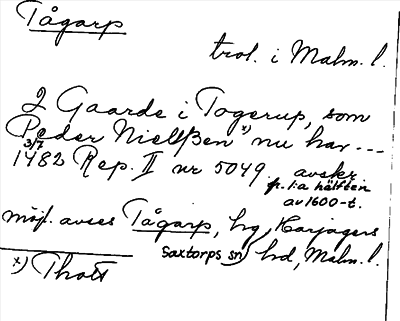 Tågarp
trol. i Malm. l.
2 Gaarde i Togerup, som
Peder Nielßen x) nu har ---
3/7
1482 Rep. II nr 5049. avskr.
fr. 1:a hälften
av 1600-t.
möjl. avses Tågarp, by, Harjagers
Saxtorps sn hd, Malm. l.
x) Thott